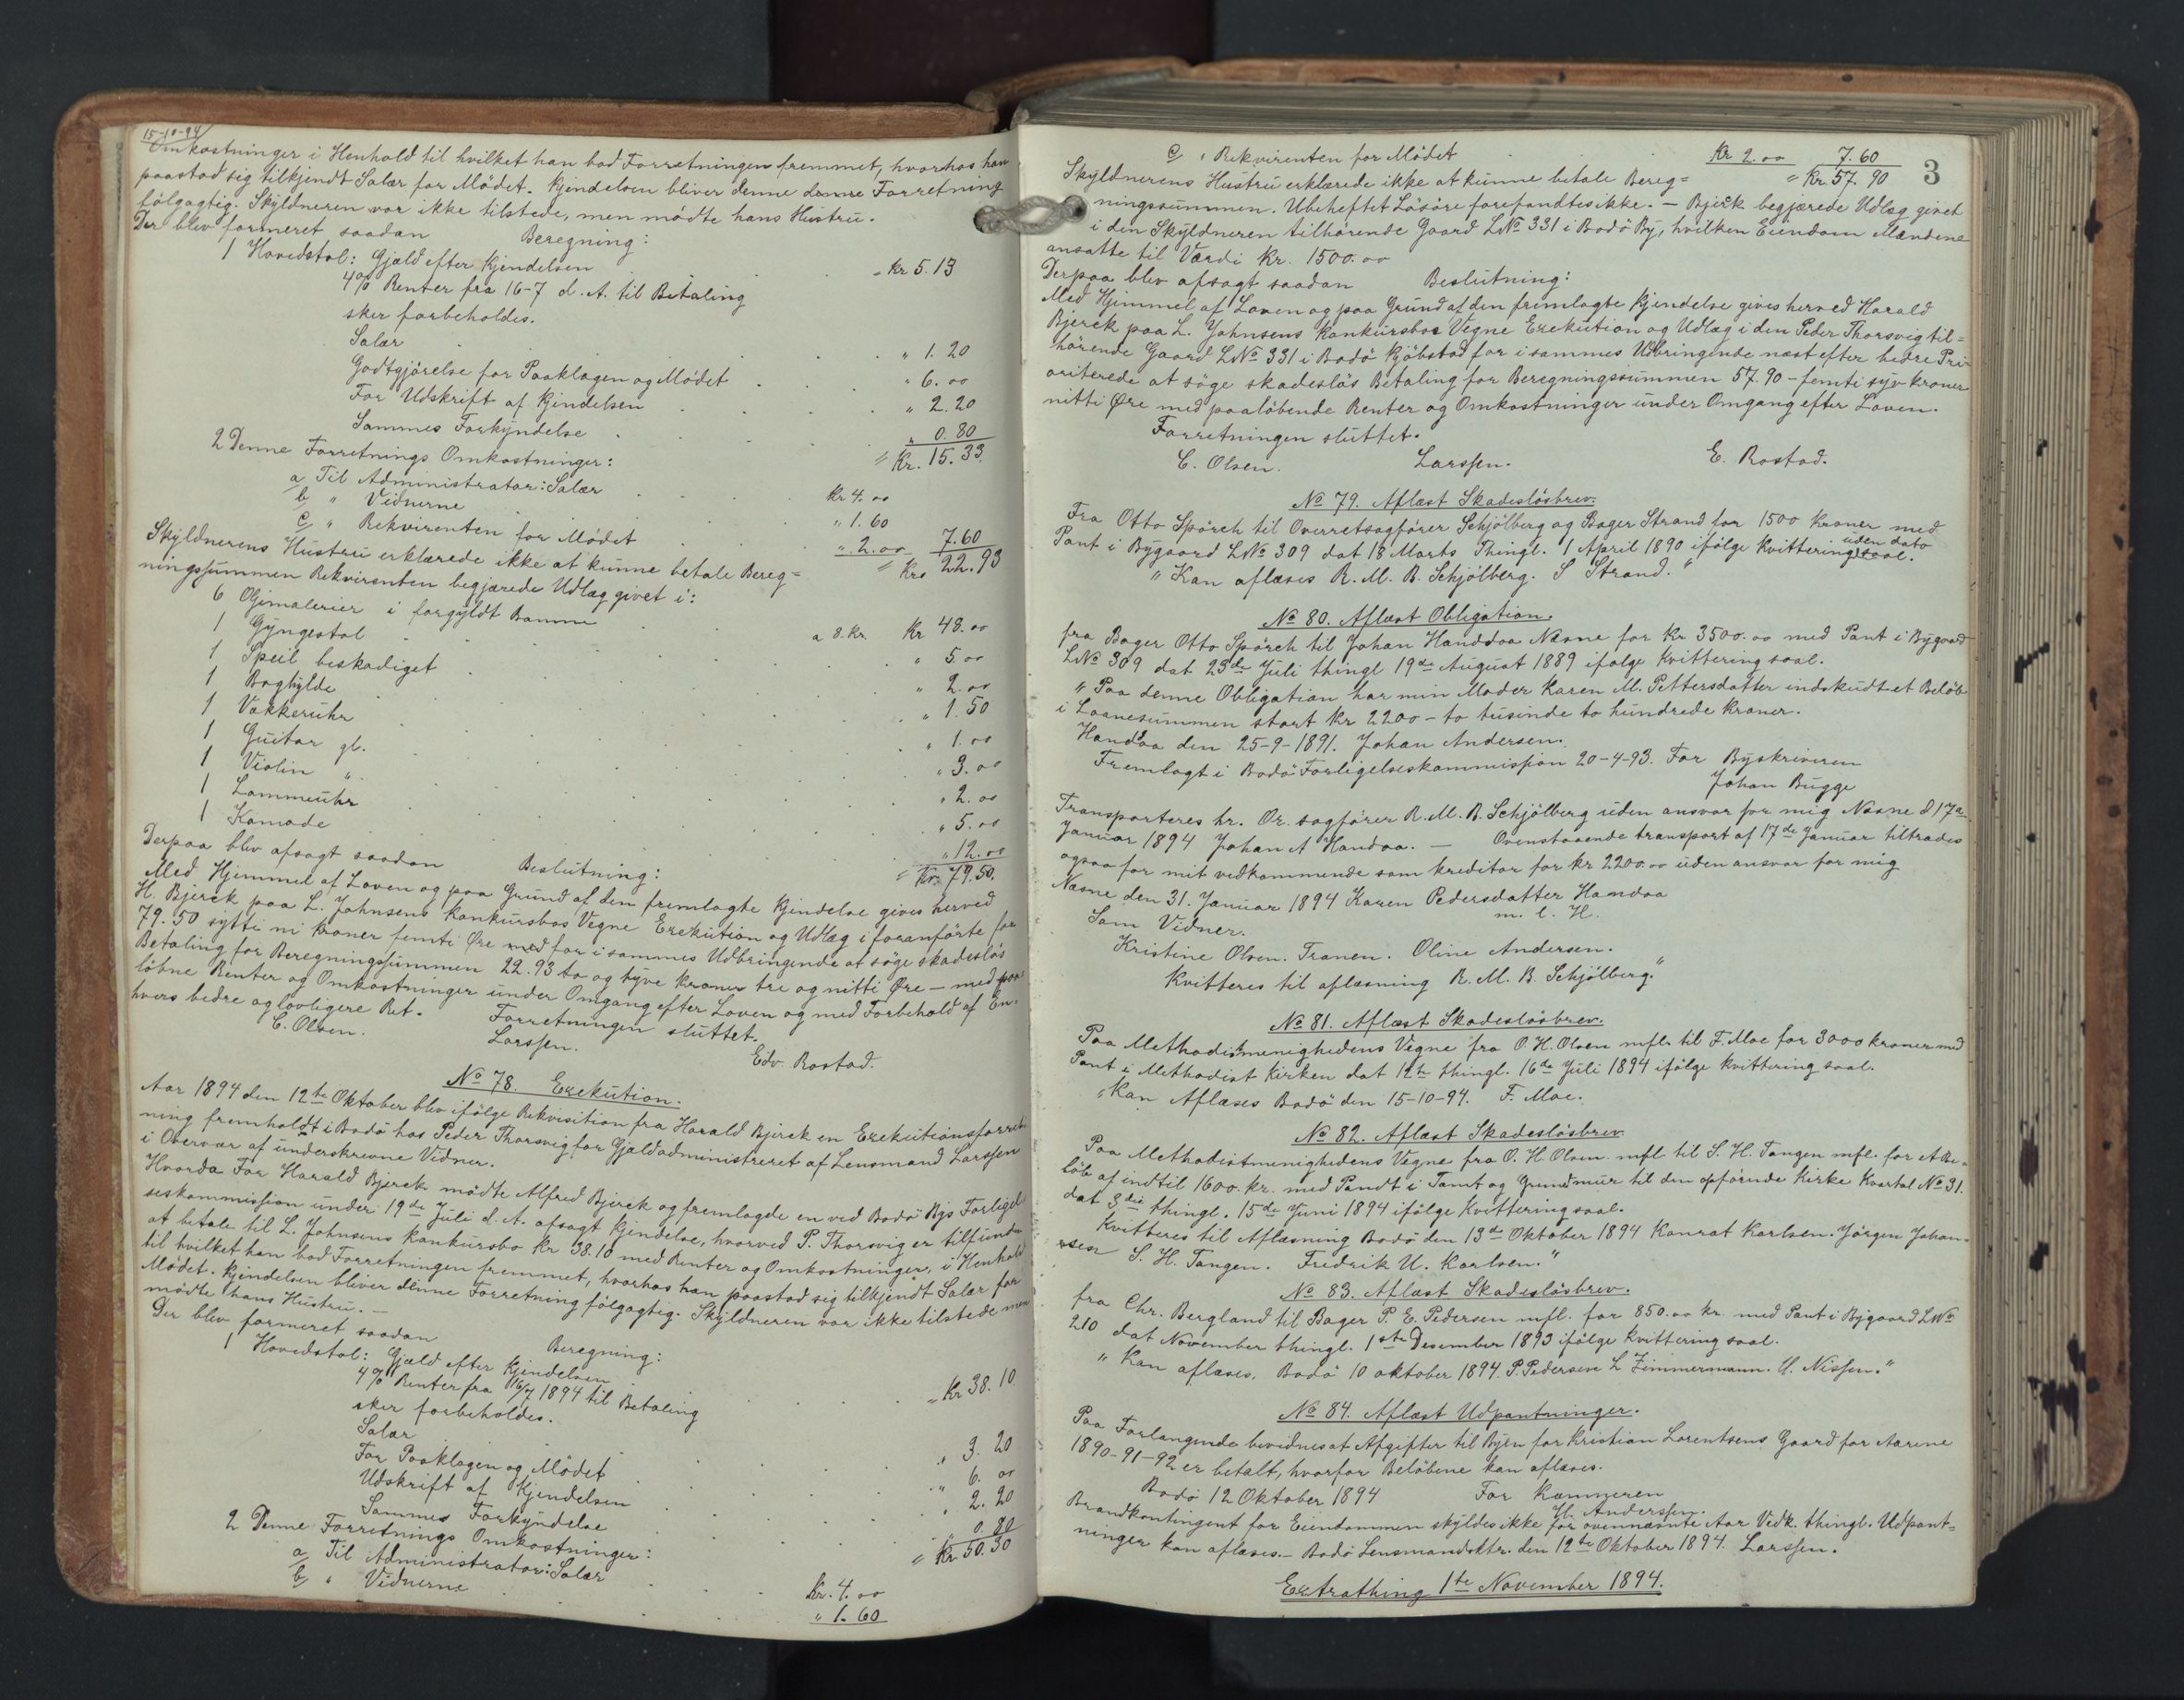 15-10-94
Omkostninger i Henhold til hvilket han bad Forretningen fremmet, hvorhos han
paastod sig tilkjendt Salær for Mødet. Kjendelsen bliver denne denne Forretning
følgagtig. Skyldneren var ikke tilstede, men mødte hans Hustru.
Der blev formeret saadan Beregning:
1 Hovedstol: Gjæld efter Kjendelsen - Kr 5.13
4% Renter fra 16-7 d. A. til Betaling
sker forbeholdes.
Salær " 1.20
Godtgjørelse for Paaklagen og Mødet " 6.00
For Udskrift af Kjendelsen " 2.20
Sammes Forkyndelse " 0.80
2 Denne Forretnings Omkostninger: = Kr. 15.33
a Til Administrator: Salær Kr 4.00
b " Vidnerne " 1.60
c " Rekvirenten for Mødet " 2.00 7.60
Skyldnerens Hustru erklærede ikke at kunne betale Bereg= = Kr. 22.93
ningssummen Rekvirenten begjærede Udlæg givet i:
6 Oljemalerier i forgyldt Ramme a 8. Kr. Kr 48.00
1 Gyngestol " 5.00
1 Speil beskadiget " 2.00
1 Boghylde " 1.50
1 Vækkeruhr " 1.00
1 Guitar gl. " 3.00
1 Violin " " 2.00
1 Lommeuhr " 5.00
1 Komode " 12.00
Derpaa blev afsagt saadan Beslutning: = Kr. 79.50.
Med Hjemmel af Loven og paa Grund af den fremlagte Kjendelse gives herved
H. Bjerck paa L. Johnsens Konkursbos Vegne Exekution og Udlæg i foranførte for
79.50 sytti ni Kroner femti Øre med for i sammes Udbringende at søge skadesløs
Betaling for Beregningssummen 22.93 to og tyve Kroner tre og nitti Øre – med paa-
løbne Renter og Omkostninger under Omgang efter Loven og med Forbehold af En-
hvers bedre og lovligere Ret. Forretningen sluttet.
C. Olsen. Larssen. Edv. Rostad.
No 78. Exekution.
Aar 1894 den 12te Oktober blev ifølge Rekvisition fra Harald Bjerck en Exekutionsforret-
ning fremholdt i Bodø hos Peder Thorsvig for Gjæld administreret af Lensmand Larssen
i Overvær af underskrevne Vidner.
Hvorda For Harald Bjerck mødte Alfred Bjerck og fremlagde en ved Bodø Bys Forligel-
seskommission under 19de Juli d. A. afsagt Kjendelse, hvorved P. Thorsvig er tilfunden
at betale til L. Johnsens Konkursbo Kr 38.10 med Renter og Omkostninger, i Henhold
til hvilket han bad Forretningen fremmet, hvorhos han paastod sig tilkjendt Salær for
Mødet. Kjendelsen bliver denne Forretning følgagtig. Skyldneren var ikke tilstede men
mødte hans Hustru. –
Der blev formeret saadan Beregning:
1 Hovedstol: Gjæld efter Kjendelsen - Kr 38.10
4% Renter fra 16/7 1894 til Betaling
sker forbeholdes.
Salær " 3.20
For Paaklagen og Mødet " 6.00
Udskrift af Kjendelsen " 2.20
Sammes Forkyndelse " 0.80
2 Denne Forretnings Omkostninger: = Kr 50.30
a Til Administrator: Salær Kr. 4.00
b " Vidnerne " 1.60
3
c " Rekvirenten for Mødet Kr 2.00 7.60
Skyldnerens Hustru erklærede ikke at kunne betale Bereg= = Kr. 57.90
ningssummen. Ubeheftet Løsøre forefandtes ikke. – Bjerck begjærede Udlæg givet
i den Skyldneren tilhørende Gaard LNo 331 i Bodø By, hvilken Eiendom Mændene
ansatte til Værdi Kr. 1500.00
Derpaa blev afsagt saadan Beslutning:
Med Hjemmel af Loven og paa Grund af den fremlagte Kjendelse gives herved Harald
Bjerck paa L. Johnsens Konkursbos Vegne Exekution og Udlæg i den Peder Thorsvig til=
hørende Gaard LNo 331 i Bodø Kjøbstad for i sammes Udbringende næst efter bedre Pri-
oriterede at søge skadesløs Betaling for Beregningssummen 57.90 – femti syv Kroner
nitti Øre med paaløbende Renter og Omkostninger under Omgang efter Loven.
Forretningen sluttet.
C. Olsen. Larssen. E. Rostad.
No 79. Aflæst Skadesløsbrev.
Fra Otto Spörch til Overretsagfører Schjølberg og Bager Strand for 1500 Kroner med
Pant i Bygaard LNo 309 dat 18 Marts Thingl. 1 April 1890 ifølge Kvittering uden dato saal.
"Kan aflæses R. M. B. Schjølberg. S Strand."
No 80. Aflæst Obligation.
fra Bager Otto Spörch til Johan Handdaa Næsne for Kr 3500.00 med Pant i Bygaard
LNo 309 dat 23de Juli thingl 19de August 1889 ifølge Kvittering saal.
"Paa denne Obligation har min Moder Karen M. Pettersdatter indskudt et Beløb
i Laanesummen stort Kr 2200 – to tusinde to hundrede Kroner.
Handaa den 25-9-1891. Johan Andersen.
Fremlagt i Bodø Forligelseskommission 20-4-93. For Byskriveren
Johan Bugge
Transporteres hr. Or. sagfører R. M. B. Schjølberg uden ansvar for mig Næsne d 17de
Januar 1894 Johan A Handaa. – Ovenstaaende transport af 17de Januar tiltrædes
ogsaa for mit vedkommende som kreditor for kr 2200.00 uden ansvar for mig
Næsne den 31. Januar 1894 Karen Pedersdatter Handaa
m. l. H.
Som Vidner.
Kristine Olsen. Tranen. Oline Andersen.
Kvitteres til aflæsning R. M. B. Schjølberg."
No 81. Aflæst Skadesløsbrev.
Paa Methodistmenighedens Vegne fra O. H. Olsen mfl. til F. Moe for 3000 kroner med
Pant i Methodist Kirken dat 12te thingl. 16de Juli 1894 ifølge kvittering saal.
"Kan Aflæses Bodø den 15-10-94. F. Moe.
No 82. Aflæst Skadesløsbrev.
Paa Methodistmenighedens Vegne fra O. H. Olsen mfl til S. H. Tangen mfl. for et Be-
løb af indtil 1600. kr. med Pandt i Tomt og Grundmur til den opførende Kirke Kvartal No 31.
dat 3die thingl. 15de Juni 1894 ifølge Kvittering saal.
Kvitteres til Aflæsning Bodø den 13de Oktober 1894 Konrat Karlsen. Jørgen Johan-
sen S. H. Tangen. Fredrik U. Karlsen."
No 83. Aflæst Skadesløsbrev.
fra Chr. Bergland til Bager P. E. Pedersen mfl. for 850.00 kr. med Pant i Bygaard LNo
210 dat November thingl. 1ste Desember 1893 ifølge kvittering saal.
"Kan aflæses, Bodø 10 oktober 1894. P. Pedersen L Zimmermann. U. Nissen."
No 84. Aflæst Udpantninger.
Paa Forlangende bevidnes at Afgifter til Byen for Kristian Lorentsens Gaard for Aarene
1890-91-92 er betalt, hvorfor Beløbene kan aflæses.
Bodø 12 Oktober 1894 For Kæmneren
H. Anderssen.
Brandkontingent for Eiendommen skyldes ikke for ovennævnte Aar Vedk. thingl. Udpant=
ninger kan aflæses. – Bodø Lensmandsktr. den 12te Oktober 1894. Larssen.
Extrathing 1te November 1894.